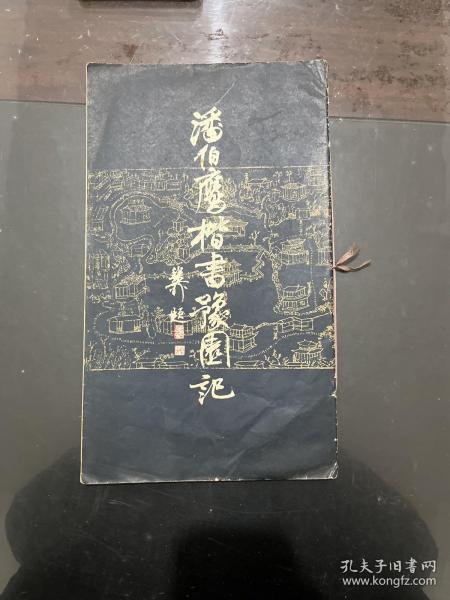 潘伯鹰楷书豫园记
龚题
孔夫子旧书网
www.kongfz.com